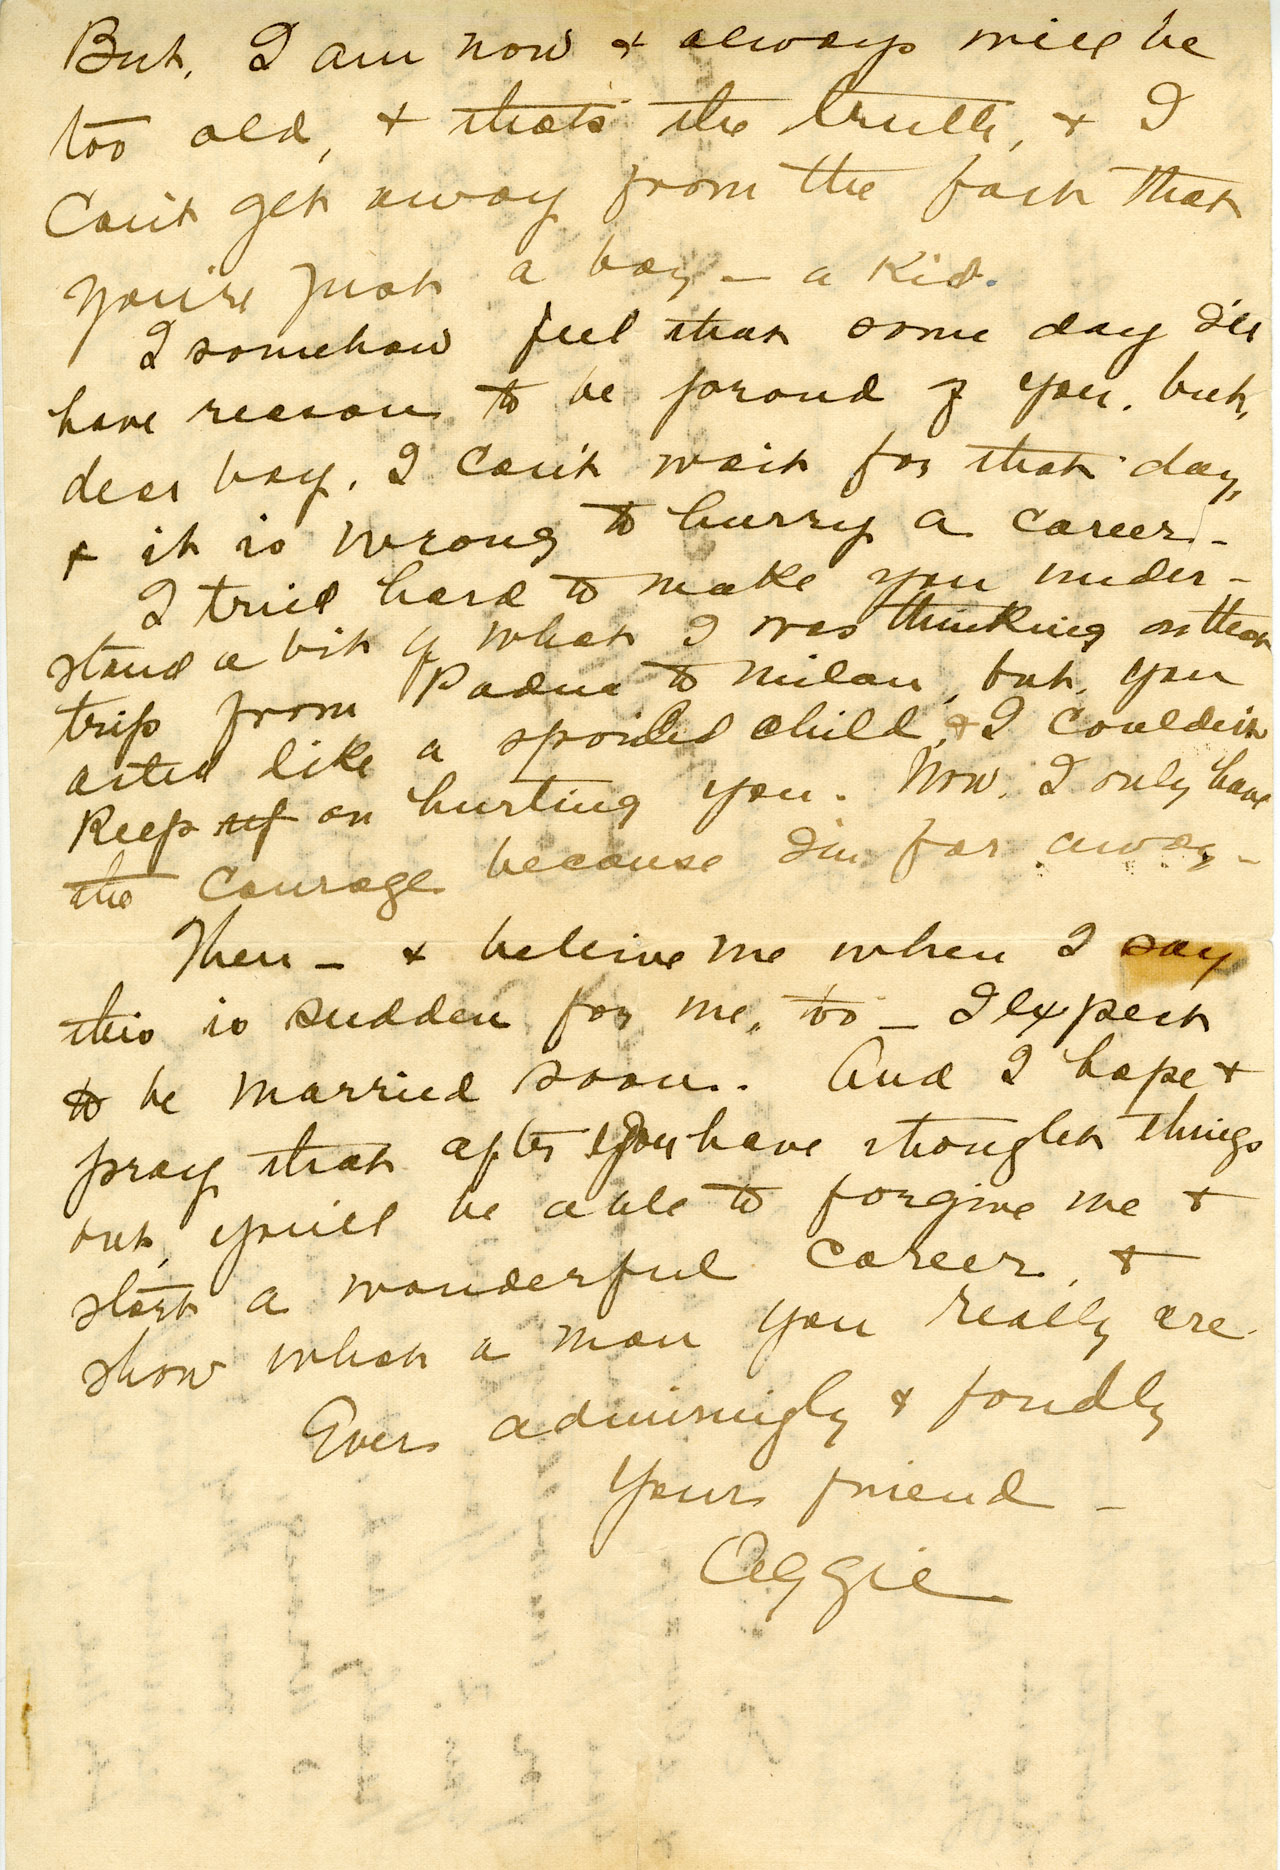 But, I am now & always will be
too old, & that's the truth, & I
can't get away from the fact that
you're just a boy – a kid.
I somehow feel that some day I'll
have reason to be proud of you, but,
dear boy, I can't wait for that day,
& it is wrong to hurry a career. –
I tried hard to make you under-
stand a bit of what I was thinking on that
trip from Padua to Milan, but, you
acted like a spoiled child, & I couldn't
keep up on hurting you. Now, I only have
the courage because I'm far away. –
Then – & believe me when I say
this is sudden for me, too – I expect
to be married soon. And I hope &
pray that after you have thought things
out, you'll be able to forgive me &
start a wonderful career, &
show what a man you really are.
Ever admiringly & fondly
Your friend –
Aggie